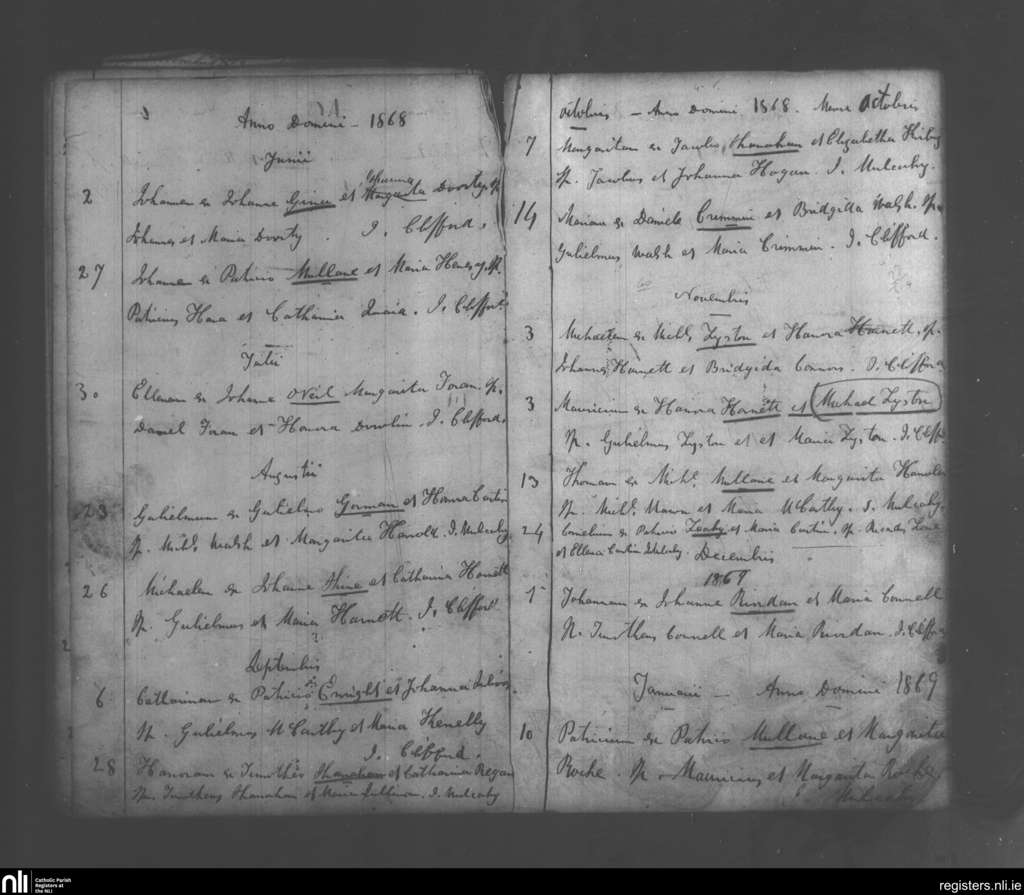 Anno Domini - 1868
Junii
2 Johannem ex Johanne et Johanna Margarita Doody, Sp.
Johannes et Maria Doody. J. Clifford.
27 Johannem ex Patricio Mullane et Maria Sp.
Patricius Hara et Catharina J. Clifford
Julii
30 Ellenam ex Johanne ONeil Margarita Foran. Sp.
Daniel Foran et Honora Dowlin. J. Clifford.
Augustii
23 Gulielmum ex Gulielmo Gorman et Honora
Sp. Michl. Walsh et Margarita Harold. J. Mulcahy
26 Michaelem ex Johanne Shine et Catharina Harnett
Sp. Gulielmus et Maria Harnett. J. Clifford
Septembris
6 Catharinam ex Patricio Enright et Johanna
Sp. Gulielmus McCarthy et Maria Kenelly
J. Clifford.
28 Honoram ex Timotheo Shanahan et Catharina Regan
Sp. Timotheus Shanahan et Maria J. Mulcahy
Octobris - Anno Domini 1868. Mense Octobris
7 Margaritam ex Jacobo Shanahan et Elizabetha
Sp. Jacobus et Johanna Hogan. J. Mulcahy.
14 Mariam ex Daniele Crimmin et Bridgida Walsh. Sp.
Gulielmus Walsh et Maria Crimmin. J. Clifford.
Novembris
3 Michaelem ex Michl. Lyston et Honora Harnett. Sp.
Johannes Harnett et Bridgida Connors. J. Clifford
3 Mauricium ex Honora Harnett et Michael Lyston
Sp. Gulielmus Lyston et et Maria Lyston. J. Cliff
13 Thomam ex Michl. Mullane et Margarita
Sp. Michl. et Maria McCarthy. J. Mulcahy.
24 Cornelium ex Patricio Leahy et Maria Sp.
et Ellena Mulcahy. Decembris
1869
1 Johannam ex Johanne Riordan et Maria Connell
Sp. Timotheus Connell et Maria Riordan. J. Cliff
Januarii - Anno Domini 1869
10 Patricium ex Patricio Mullane et Margarita
Roche. Sp. Mauricius et Margarita Roche.
J. Mulcahy
nli Catholic Parish
Registers at
the NLI
registers.nli.ie